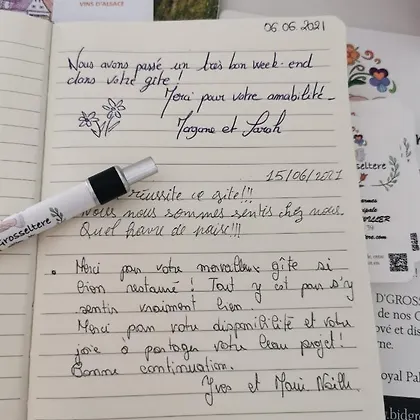 VINS D'ALSACE
06.06.2021
Nous avons passé un très bon week-end
dans votre gîte !
Merci pour votre amabilité.
et Sarah
15/06/2021
réussite ce gîte!!!
nous nous sommes sentis chez nous.
Quel havre de paix!!!
Grosseltere
. Merci pour votre merveilleux gîte si
bien restauré ! Tout y est pour s'y
sentir vraiment bien.
Merci pour votre disponibilité et votre
joie à partager votre beau projet !
Bonne continuation.
Yves et Marie Noëlle
sseltere
D'GROSS
de nos G
ové et dis
rne.
oyal Pal
www.bidgro